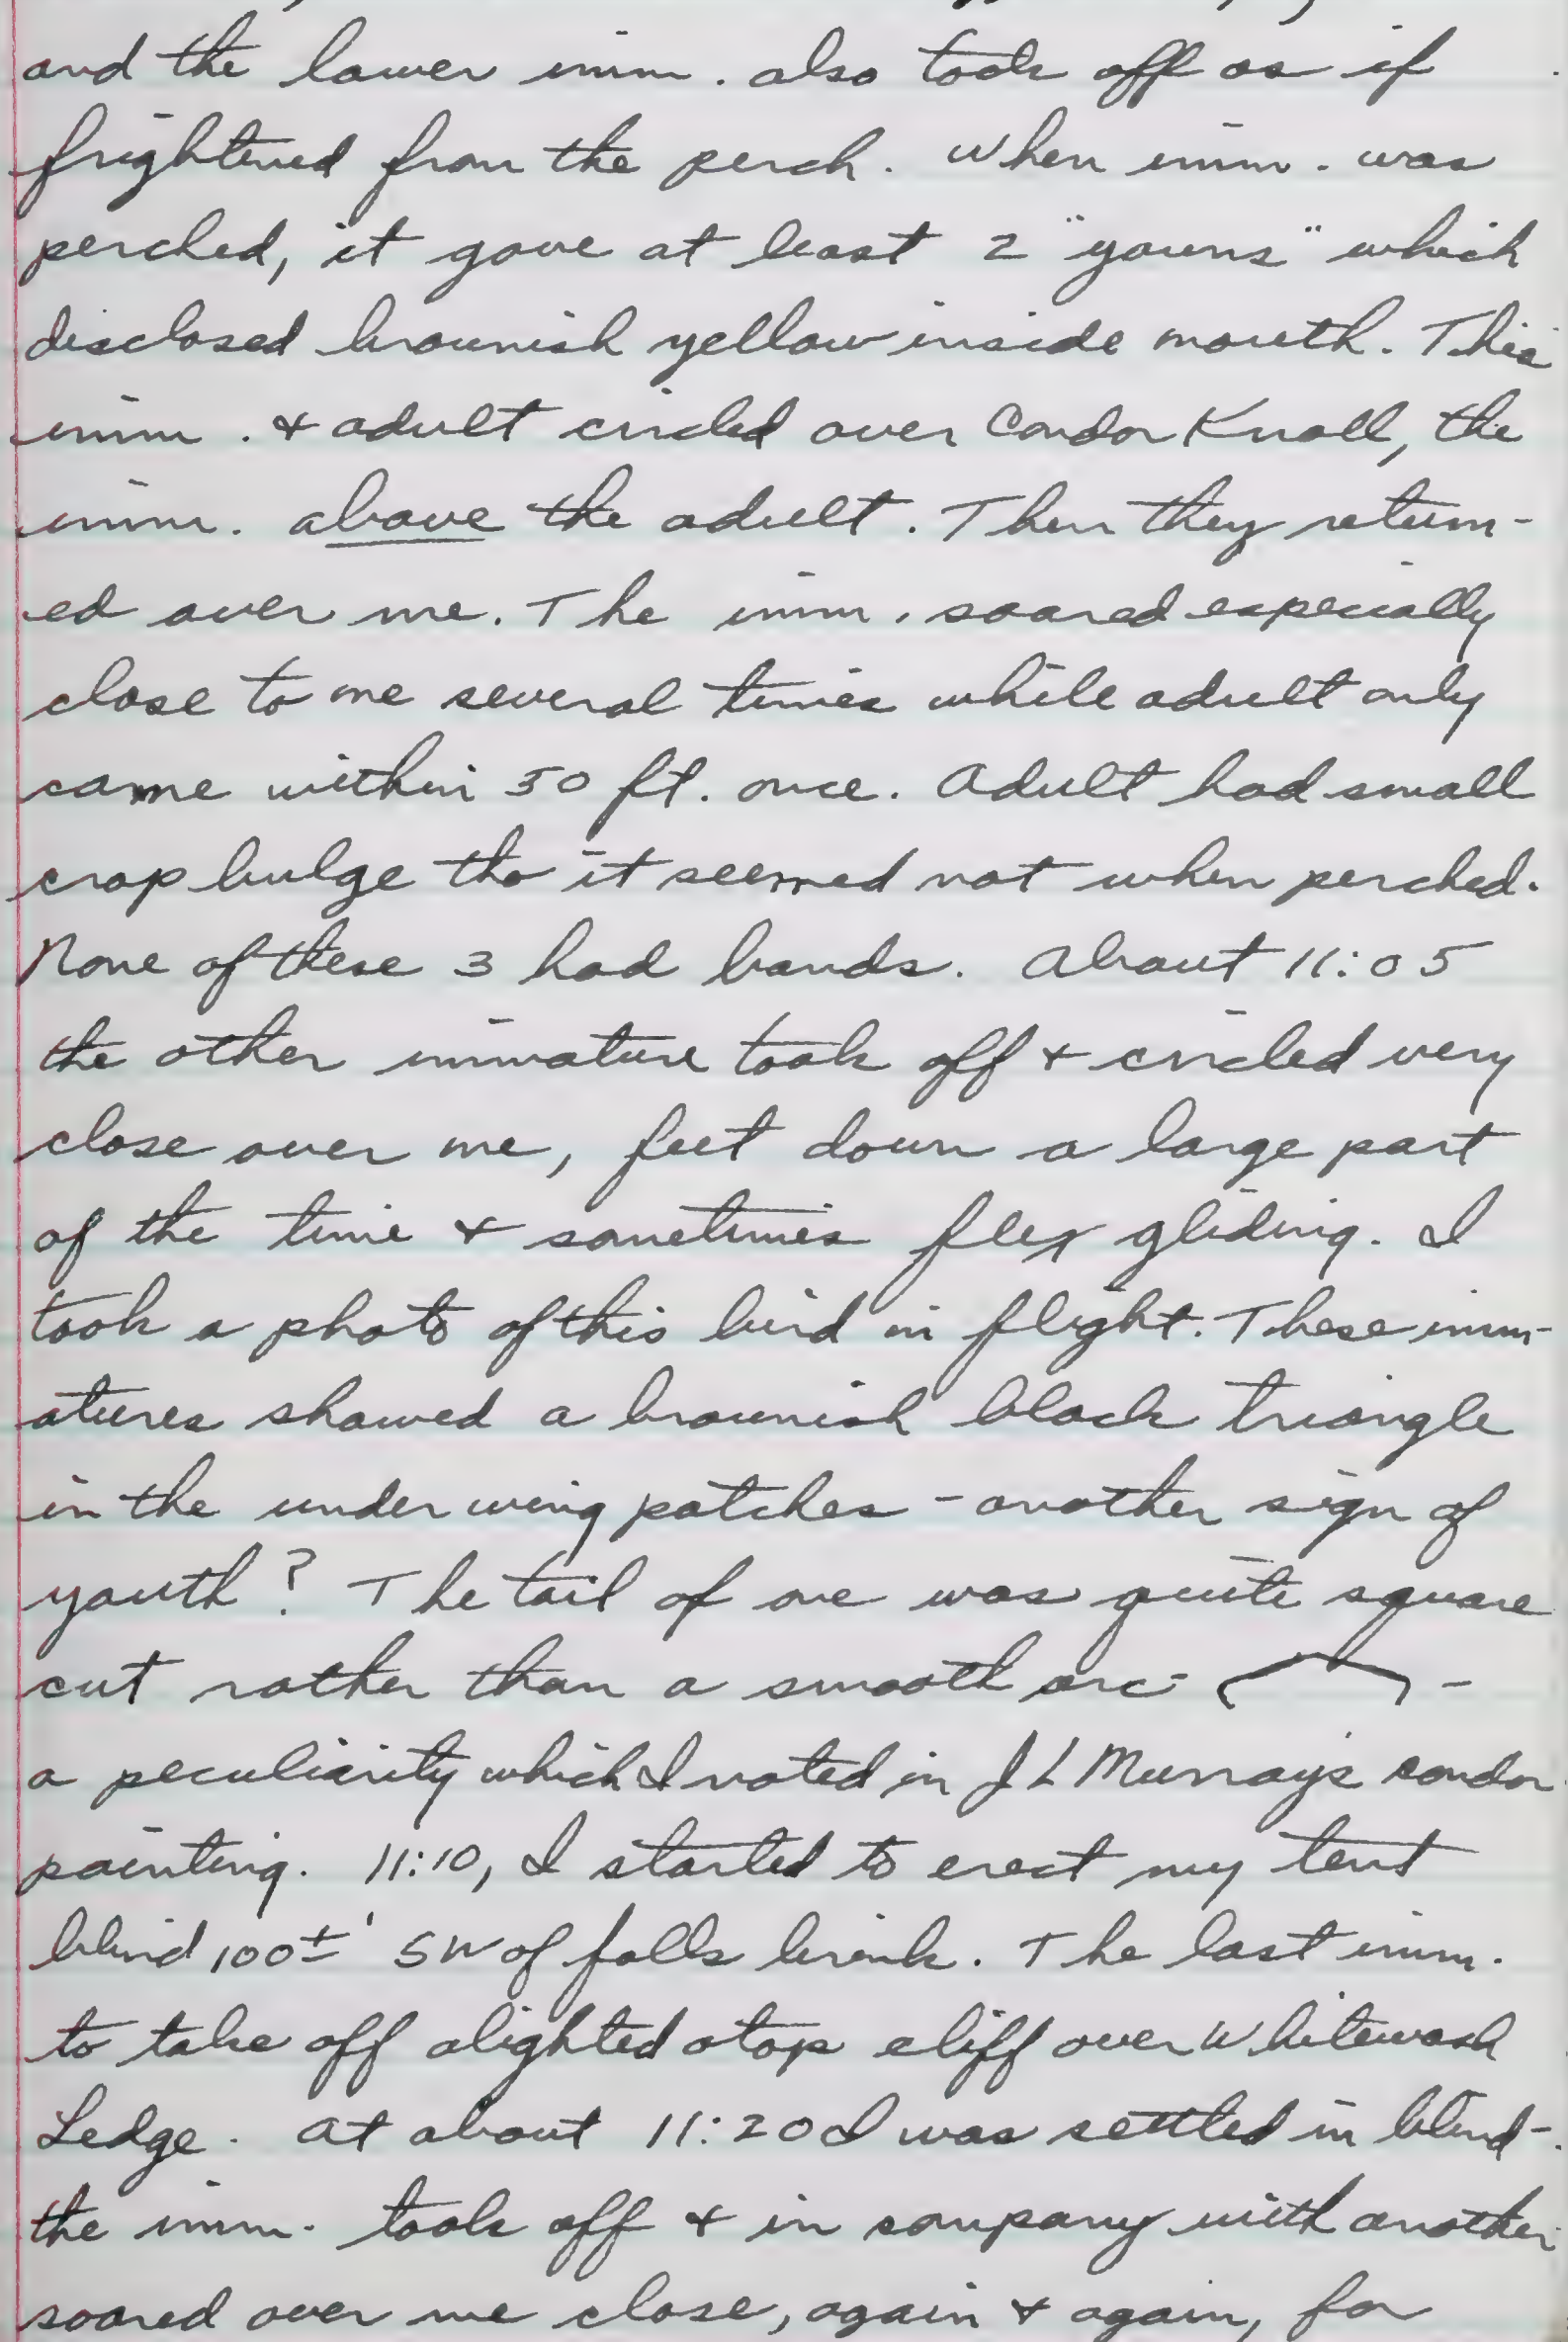 and the lower imm. also took off as if
frightened from the perch. When imm. was
perched, it gave at least 2 "yawns" which
disclosed brownish yellow inside mouth. This
imm. & adult circled over Condor Knoll, the
imm. above the adult. Then they return-
ed over me. The imm. soared especially
close to me several times while adult only
came within 50 ft. once. Adult had small
crop bulge tho it seemed not when perched.
None of these 3 had bands. About 11:05
the other immature took off & circled very
close over me, feet down a large part
of the time & sometimes flex gliding. I
took a photo of this bird in flight. These imm-
atures showed a brownish black triangle
in the under wing patches - another sign of
youth? The tail of one was quite square
cut rather than a smooth arc - -
a peculiarity which I noted in J L Murray's condor
painting. 11:10, I started to erect my tent
blind 100±' SW of falls brink. The last imm.
to take off alighted atop cliff over Whitewash
Ledge. At about 11:20 I was settled in blind-
the imm. took off & in company with another
soared over me close, again & again, for